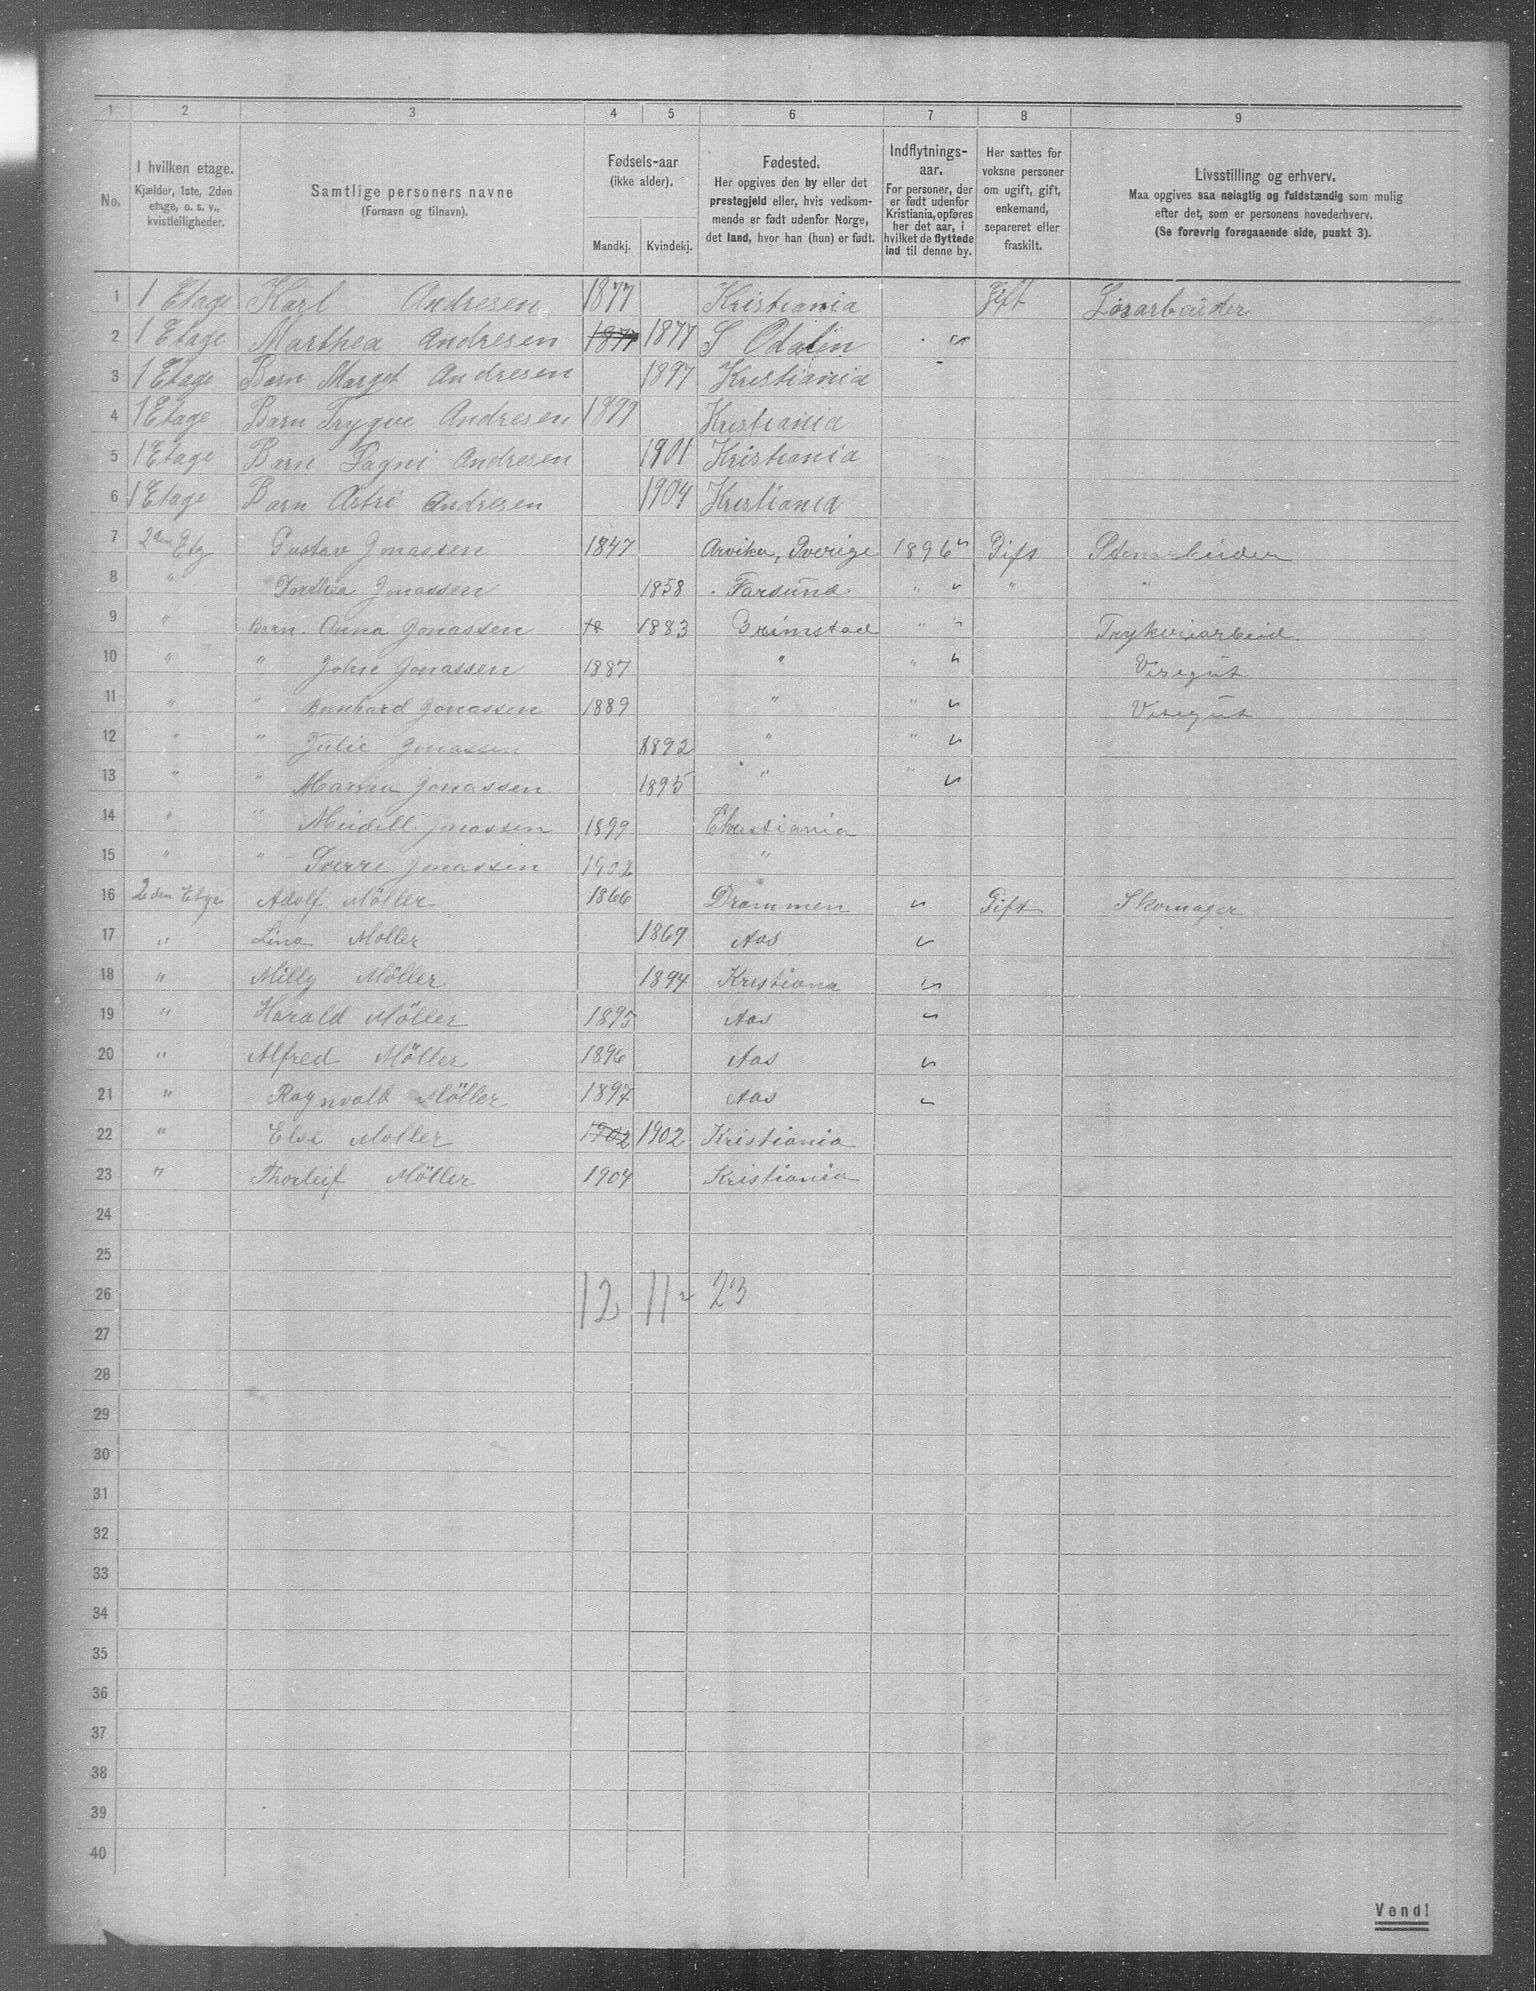 1 2 3 4 5 6 7 8 9
No.
I hvilken etage.
Kjælder, 1ste, 2den
etage, o. s. v.,
kvistleiligheder.
Samtlige personers navne
(Fornavn og tilnavn).
Fødsels-aar
(ikke alder).
Mandkj. Kvindekj.
Fødested.
Her opgives den by eller det
prestegjeld eller, hvis vedkom-
mende er født udenfor Norge,
det land, hvor han (hun) er født.
Indflytnings-
aar.
For personer, der
er født udenfor
Kristiania, opføres
her det aar, i
hvilket de flyttede
ind til denne by.
Her sættes for
voksne personer
om ugift, gift,
enkemand,
separeret eller
fraskilt.
Livsstilling og erhverv.
Maa opgives saa nøiagtig og fuldstændig som mulig
efter det, som er personens hovederhverv.
(Se forøvrig foregaaende side, punkt 3).
1 1 Etage Karl Andresen 1877 Kristiania Gift Løsarbeider
2 1 Etage Marthea Andresen 1877 1877 S Odalen
3 1 Etage Barn Margot Andresen 1897 Kristiania
4 1 Etage Barn Trygve Andresen 1899 Kristiania
5 1 Etage Barn Dagni Andresen 1901 Kristiania
6 1 Etage Barn Astri Andresen 1904 Kristiania
7 2den Etg Gustav Jonassen 1847 Arvika, Sverige 1896 Gift Stenarbeider
8 " Dorthea Jonassen 1858 Farsund " " "
9 " Barn Anna Jonassen 1883 Grimstad " Trykeriarbeid.
10 " " John Jonassen 1887 " " Visegut
11 " " Bernhard Jonassen 1889 " " Visegut
12 " " Julie Jonassen 1892 " "
13 " " Marna Jonassen 1895 " "
14 " " Meidell Jonassen 1899 Christiania
15 " " Sverre Jonassen 1902 "
16 2den Etge Adolf Möller 1866 Drammen Gift Skomager
17 " Lina Moller 1869 Aas
18 " Milly Möller 1894 Kristiana
19 " Harald Möller 1895 Aas
20 " Alfred Möller 1896 Aas
21 " Ragnvald Möller 1897 Aas
22 " Else Moller 1902 1902 Kristiania
23 " Thorleif Möller 1904 Kristiania
24
25
26 12 11 23
27
28
29
30
31
32
33
34
35
36
37
38
39
40
Vend!